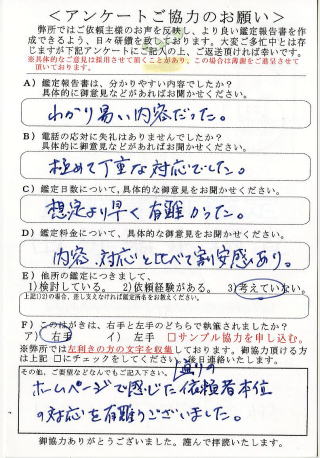 ＜アンケートご協力のお願い＞
弊所ではご依頼主様のお声を反映し、より良い鑑定報告書を作
成できるよう、日々研鑽を致しております。大変ご多忙中とは存
じますが下記アンケートにご記入の上、ご返送頂ければ幸いです。
※具体的なご意見は採用させて頂くことがあり、この場合は薄謝をご進呈させて
頂いております。
A）鑑定報告書は、分かりやすい内容でしたか？
具体的に御意見などがあればお聞かせください。
わかり易い内容だった。
B）電話の応対に失礼はありませんでしたか？
具体的に御意見などがあればお聞かせください。
極めて丁重な対応でした。
C）鑑定日数について、具体的な御意見をお聞かせください。
想定より早く有難かった。
D）鑑定料金について、具体的な御意見をお聞かせください。
内容、対応と比べて割安感あり。
E）他所の鑑定につきまして、
1)検討している。 2)依頼経験がある。 3)考えていない。
上記1)2)の場合、差し支えなければ鑑定所名をお教えください。
F）このはがきは、右手と左手のどちらで執筆されましたか？
ア）右手 イ）左手 □サンプル協力を申し込む。
※弊所では左利きの方の文字を収集しております。御協力頂ける方
は上記□にチェックをしてください。後日連絡いたします。
その他、ご要望などなんでもご記入下さい。
通りの
ホームページで感じた依頼者本位
の対応を有難うございました。
御協力ありがとうございました。謹んで拝読いたします。